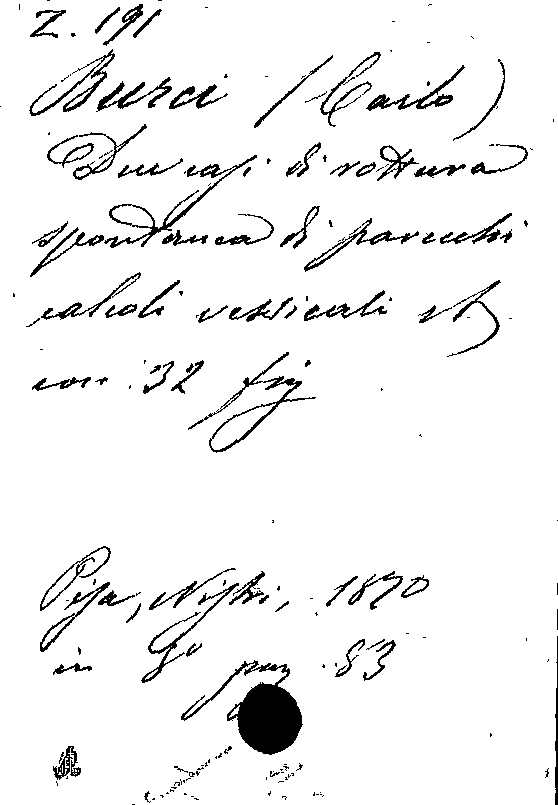 Z. 191
Burci (Carlo)
Due casi di rottura
spontanea di parecchi
calcoli vessicali etc
con 32 fig
Pisa, Nistri, 1870
in 8° pag 83